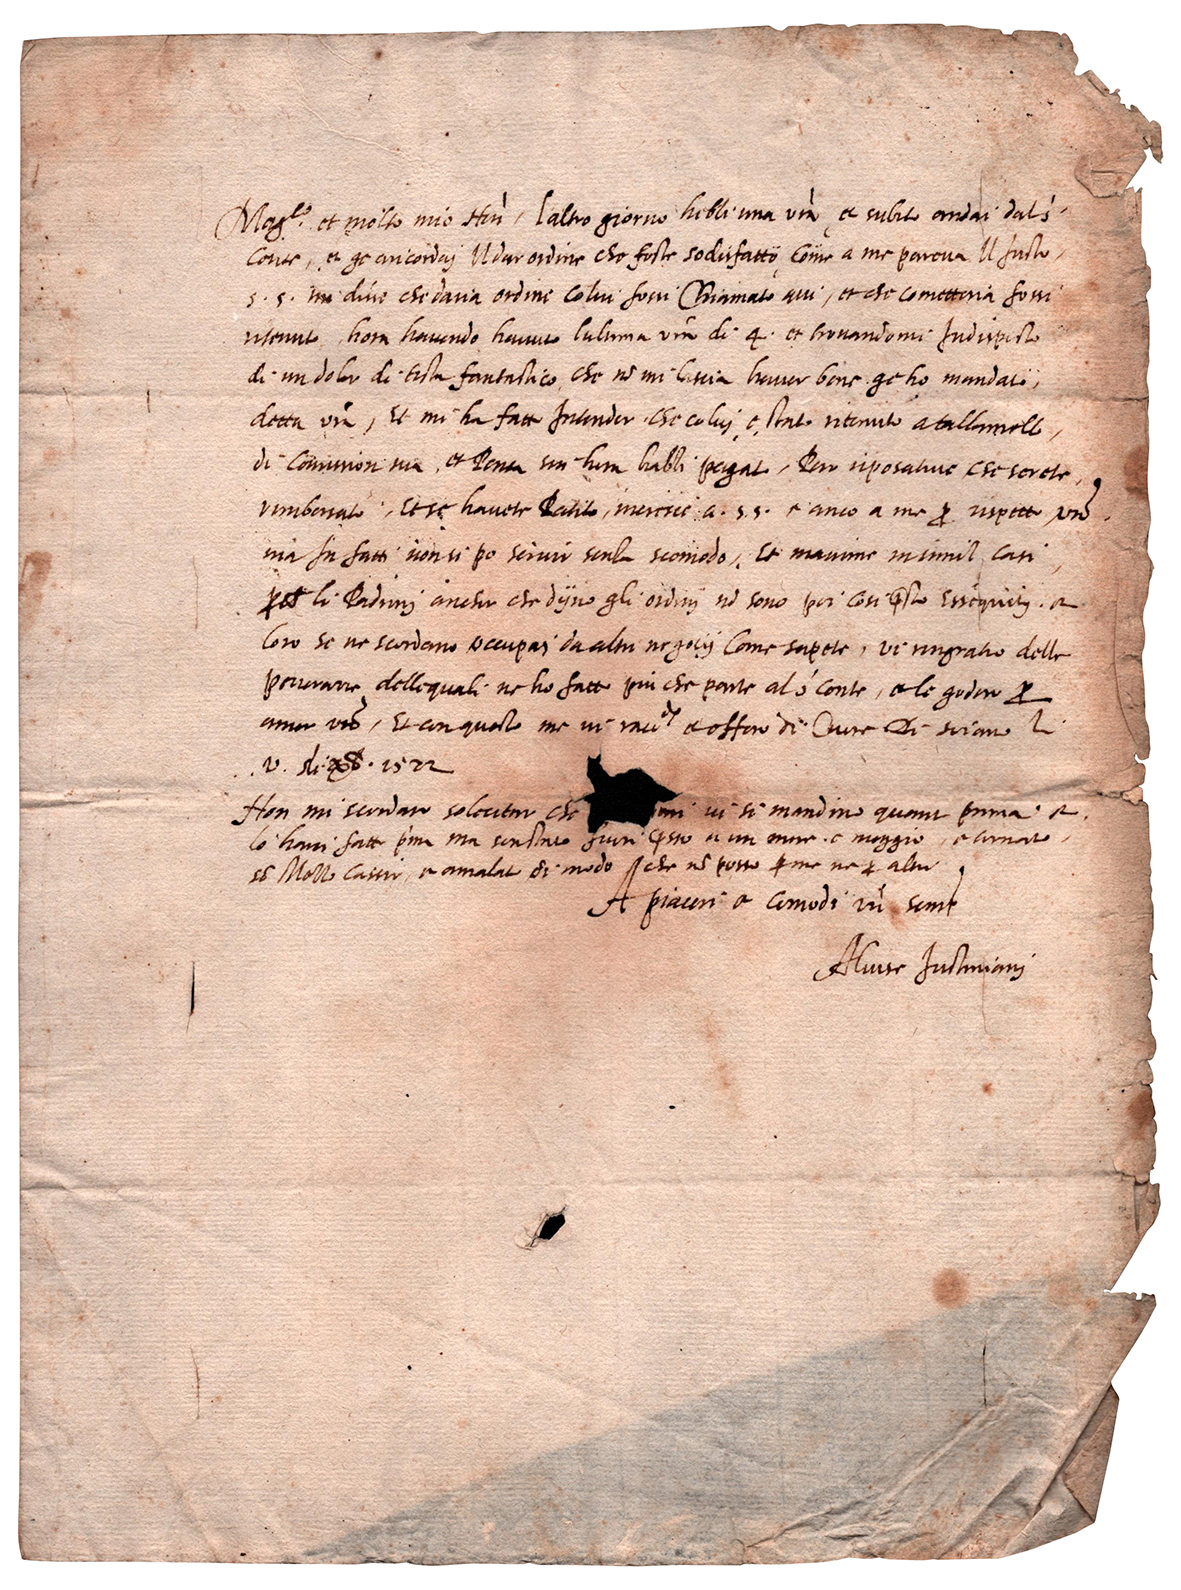 Mag.co et molto mio Hon.r, laltro giorno hebbi una vra, et subito andai dal s.
Conte, et ge aricordai Il dar ordine che foste sodisfatto, come a me pareva Il Justo,
s. s. mi disse che daria ordine colui fossi Chiamato qui, et che cometteria fossi
ritenuto, hora havendo havuto lultima vra di 4. et trovandomi Indisposto
di un dolor di testa fantastico, che nō mi lascia haver bene ge ho mandato
detta vra, Et mi ha fatto Intender che colui è stato ritenuto
di comission sua, et Pensa sin hora habbi pagato, Pero riposative che serete
rimborsato, Et se havete Patito, increscie a. s. s. e anco a me p rispetto vro.
ma In fatti non si po servir senza scomodo, Et maxime in simil Casi,
li Padroni anchor che dijno gli ordini nō sono poi cosi p̄sto essequiti. et
loro se ne scordano occupati da altri negotij Come sapete, vi ringratio delle
delle quali ne ho fatto piu che parte al s. Conte, et le godero p
amor vro, Et con questo me vi rac.do et offero di Cuore Di
v. di 1522
Non mi scordaro solecitar che vi si mandino quanto prima. et
lo havei fatto p.ma ma son stato fuori q̄sto et un mese. e meggio, e tornato
Molto e amalato di modo che nō posso p me ne p altri
A piaceri et Comodi vri semp
Aluise Justiniani